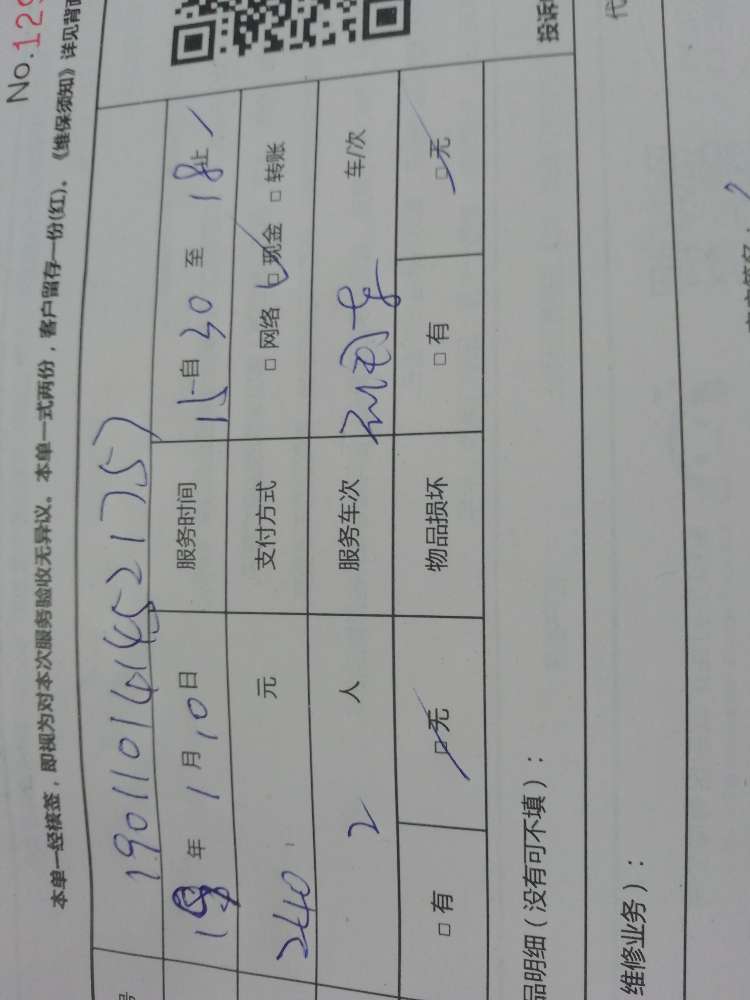 No.129
本单一经核签，即视为对本次服务验收无异议。本单一式两份，客户留存一份(红)。《维保须知》详见背面
投诉
代
号 1901101414521757
19 年 1 月 10 日 服务时间 15 自 30 至 18 止
240 元 支付方式 □ 网络 □ 现金 □ 转账
2 人 服务车次 车/次
□ 有 □ 无 物品损坏 □ 有 □ 无
品明细（没有可不填）：
维修业务）：